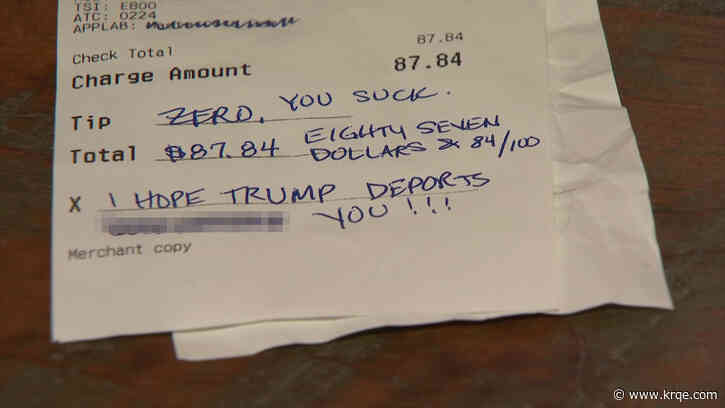 TSI: E800
ATC: 0224
APPLAB:
87.84
Check Total
Charge Amount 87.84
Tip ZERO, YOU SUCK.
Total $87.84 EIGHTY SEVEN
DOLLARS & 84/100
X I HOPE TRUMP DEPORTS
YOU!!!
Merchant copy
© www.krqe.com